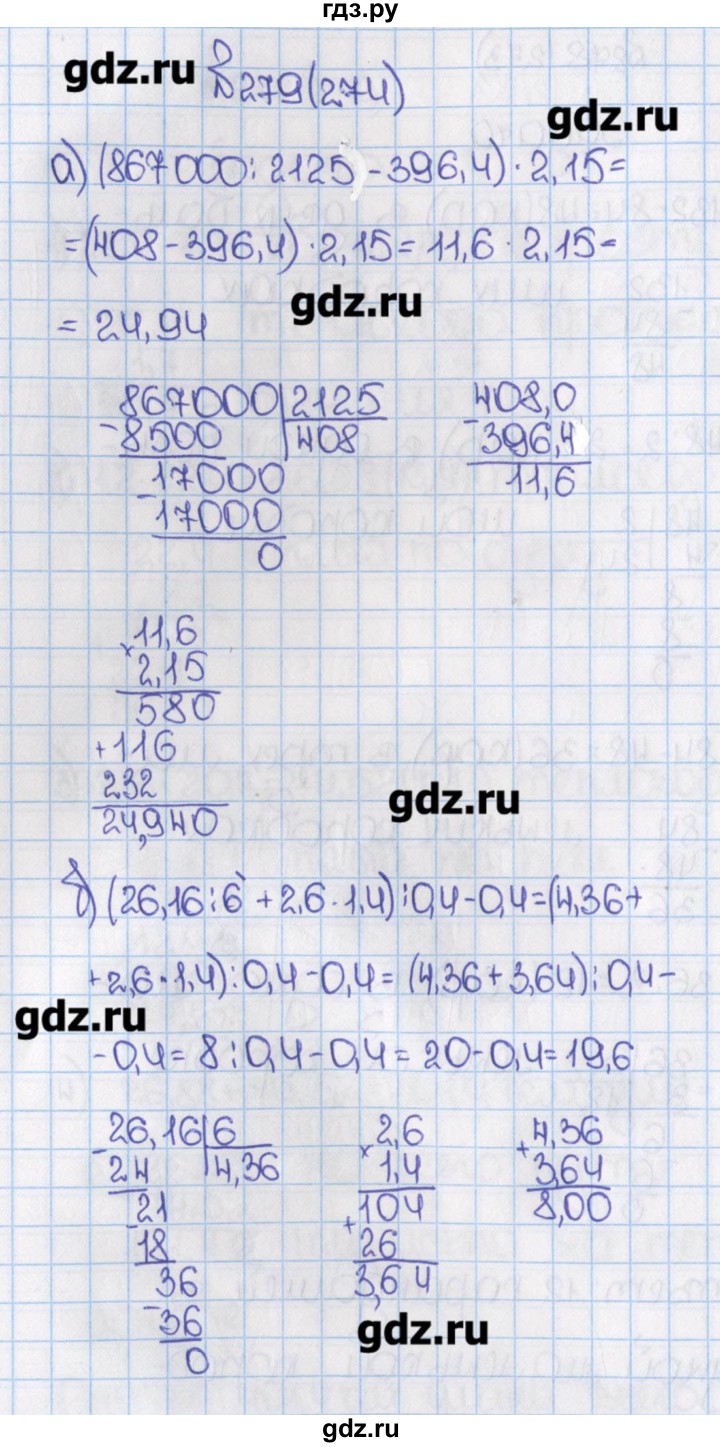 гдз.ру
gdz.ru
№279(274)
gdz.ru
а) (867000:2125-396,4)·2,15=
=(408-396,4)·2,15=11,6·2,15=
gdz.ru
=24,94
867000|2125
-8500 |408
-17000
17000
0
408,0
-396,4
11,6
11,6
×2,15
580
+116
232
24,940
gdz.ru
б) (26,16:6+2,6·1,4):0,4-0,4=(4,36+
+2,6·1,4):0,4-0,4=(4,36+3,64):0,4-
gdz.ru
-0,4=8:0,4-0,4=20-0,4=19,6
-26,16|6
24 |4,36
-21
18
-36
36
0
2,6
×1,4
104
+26
3,64
4,36
+3,64
8,00
gdz.ru
gdz.ru